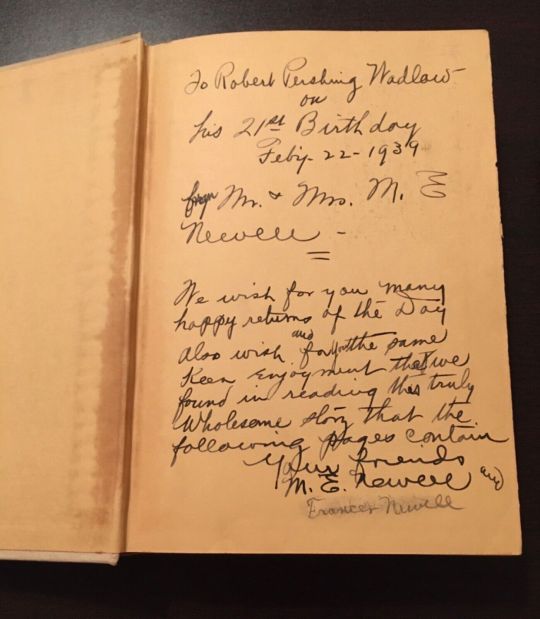 To Robert Pershing Wadlow
on
his 21st Birthday
Feb'y- 22-1939
from Mr. & Mrs. M. E
Newell -
We wish for you many
happy returns of the Day
and
also wish for you the same
Keen Enjoyment that we
found in reading this truly
Wholesome story that the
following pages contain
Your friends
M. E. Newell and
Frances Newell